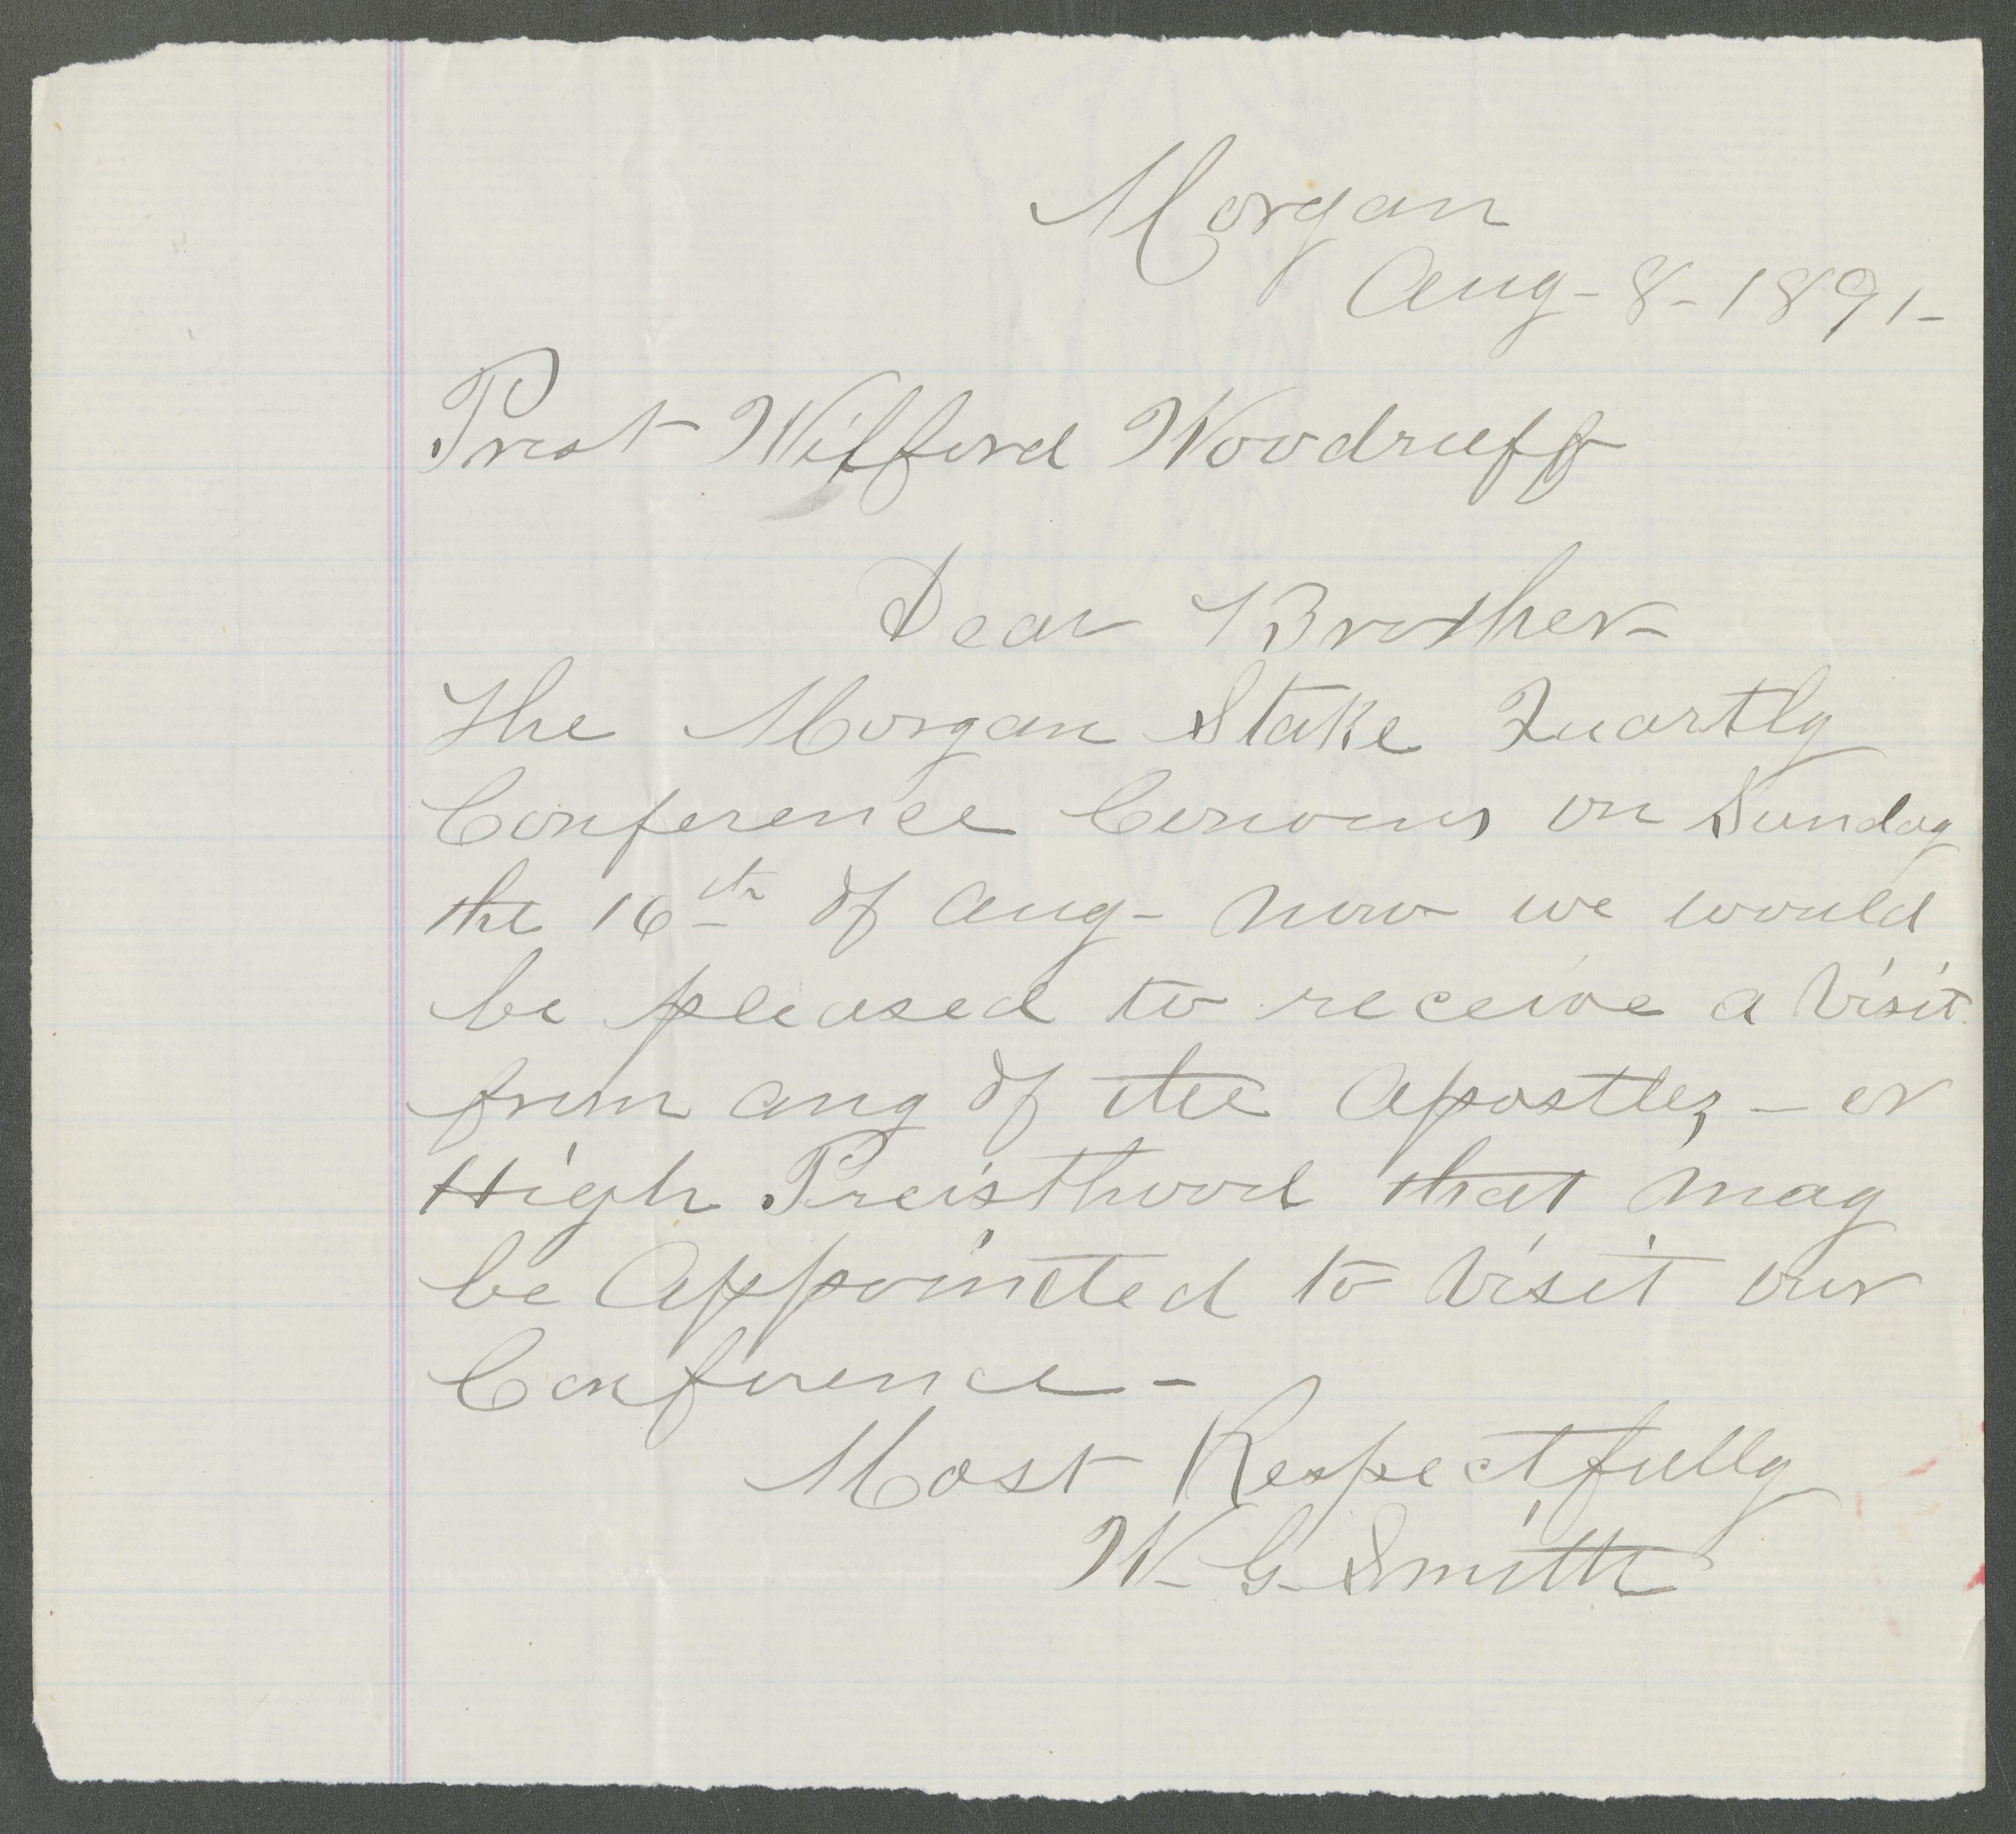 Morgan
Aug - 8 - 1891 -
Prest Wilford Woodruff
Dear Brother -
The Morgan Stake Quartly
Conference on Sunday
the 16th of Aug - now we would
be pleased to receive a visit
from any of the Apostles, - or
High Preisthood that may
be Appointed to Visit our
Conference -
Most Respectfully
W - G - Smith